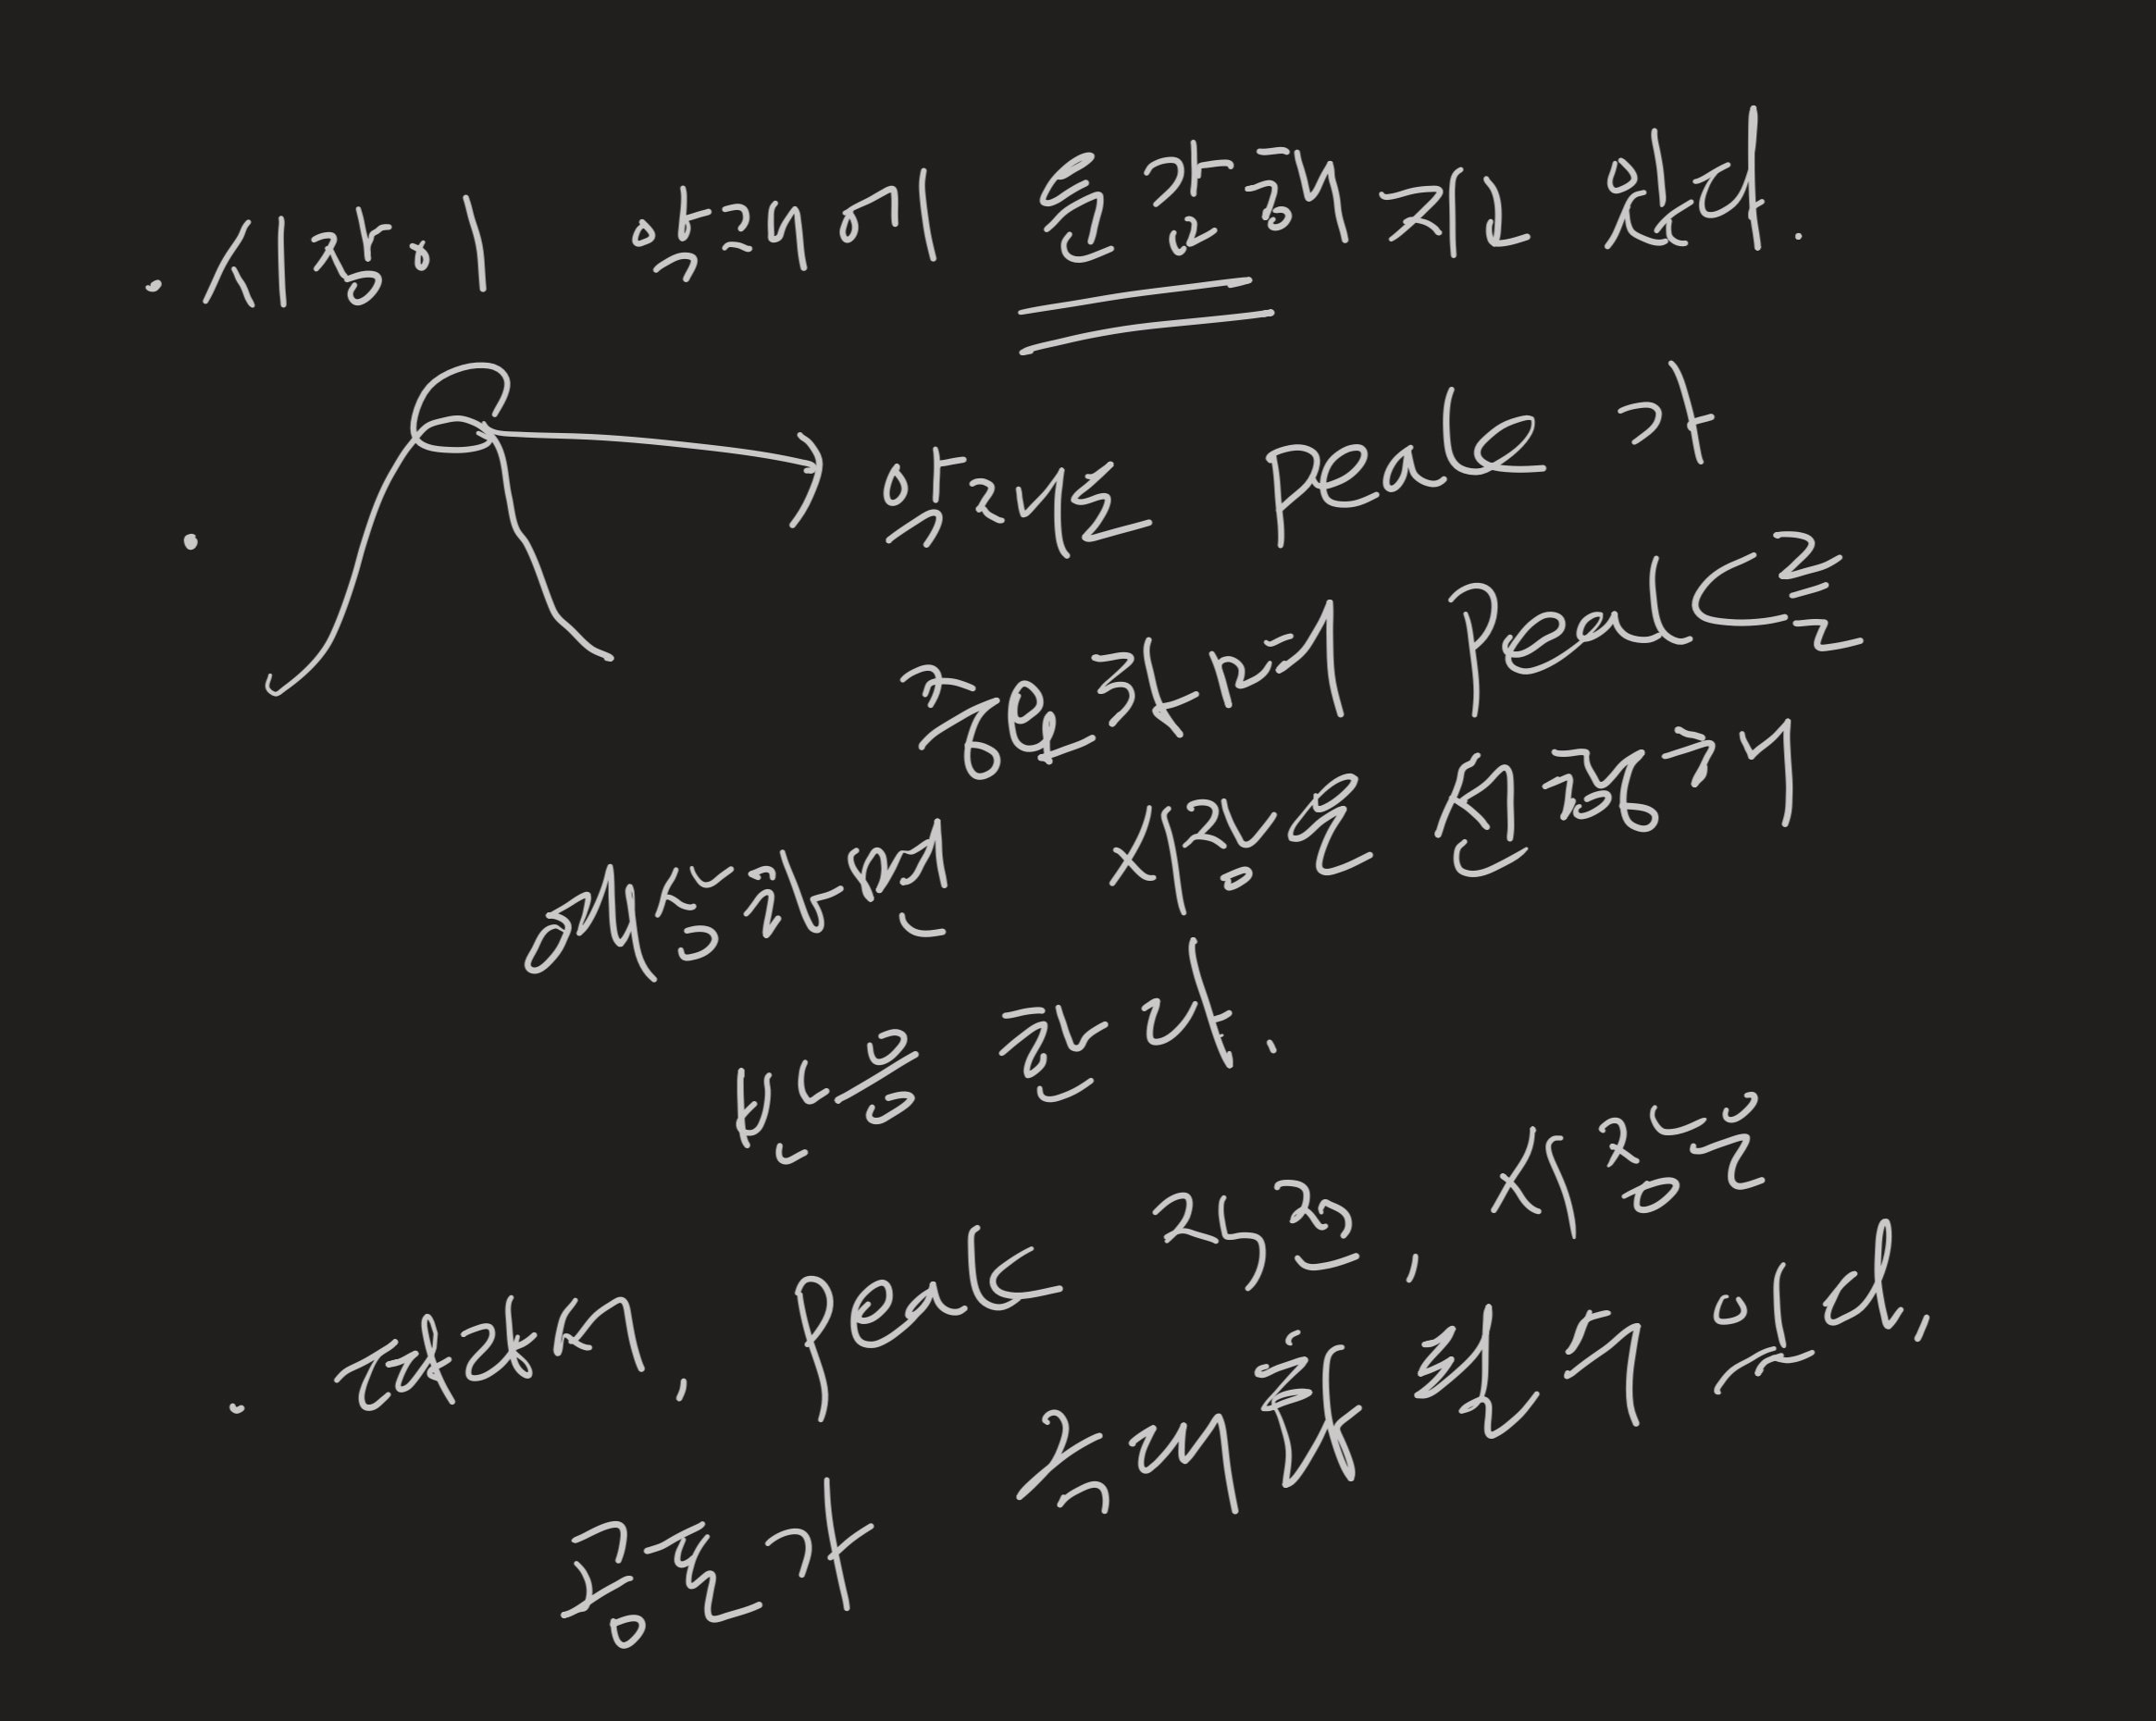 · 시장이 악재에 둔감해지고 있다.
· 악재는 peak가
중요하며 peak를
예상하면 시장은 선행해
반응한다.
· 따라서, peak 직전, 시점은
공포가 극대화 할 수 있다,